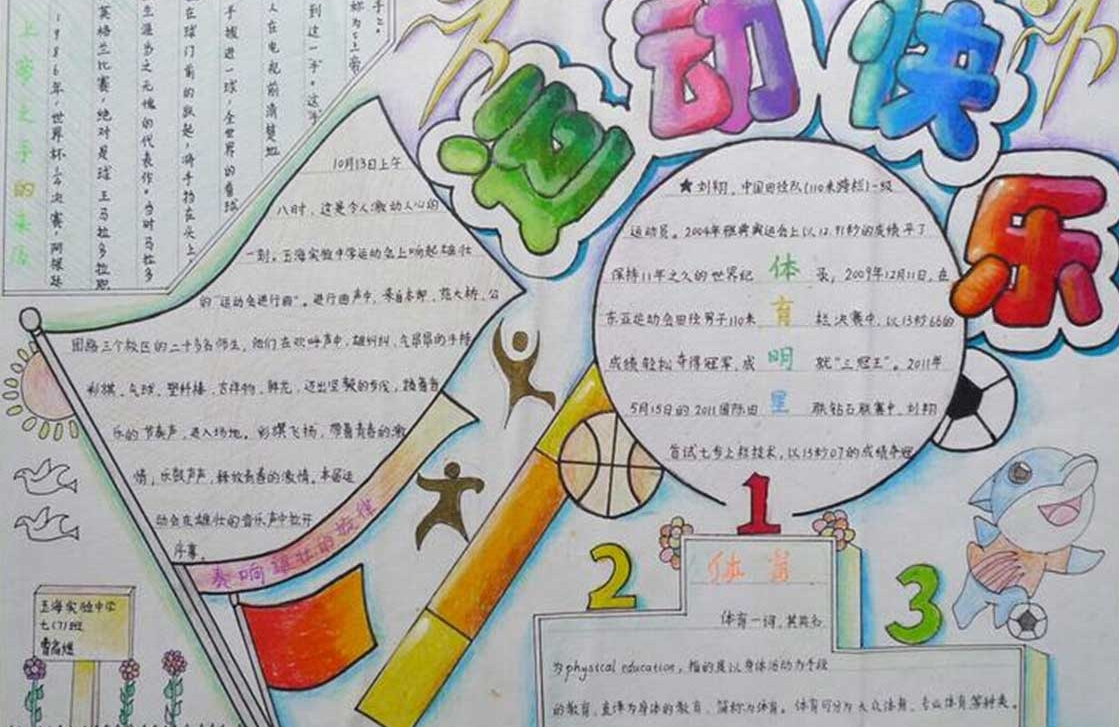 运动快乐
上帝之手的来历
手。
称为"上帝
到这一手。这手
人在电视前清楚地
手掀进一球,全世界的看球
在球门前的跃起,将手挡在头上
生涯当之无愧的代表作。当时马拉多
英格兰比赛,绝对是球王马拉多拉职
1986年,世界杯1/4决赛,阿根廷
10月13日上午
八时,这是令人激动人心的
一刻。玉海实验中学运动会上响起雄壮
的"运动会进行曲"。进行曲声中,来自本部、范大桥、公
园路三个校区的二十多名师生,他们在欢呼声中,雄纠纠、气昂昂的手持
彩旗、气球、塑料棒、吉祥物、鲜花,迈出坚毅的步伐,踏着音
乐的节奏声,进入场地。彩旗飞扬,带着青春的激
情,乐鼓声声,释放青春的激情。本届运
动会在雄壮的音乐声中拉开
序幕。
奏响雄壮的旋律
★刘翔,中国田径队(110米跨栏)一级
运动员。2004年雅典奥运会上以12.91秒的成绩平了
保持11年之久的世界纪录,2009年12月11日,在
东亚运动会田径男子110米栏决赛中,以13秒66的
成绩轻松夺得冠军,成就"三冠王"。2011年
5月15日的2011国际田联钻石联赛中,刘翔
尝试七步上栏技术,以13秒07的成绩夺冠
体育明星
1
2
3
体育
体育一词,其英名
为physical education,指的是以身体活动为手段
的教育,直译为身体的教育,简称为体育。体育可分为大众体育、专业体育等种类。
玉海实验中学
七(7)班